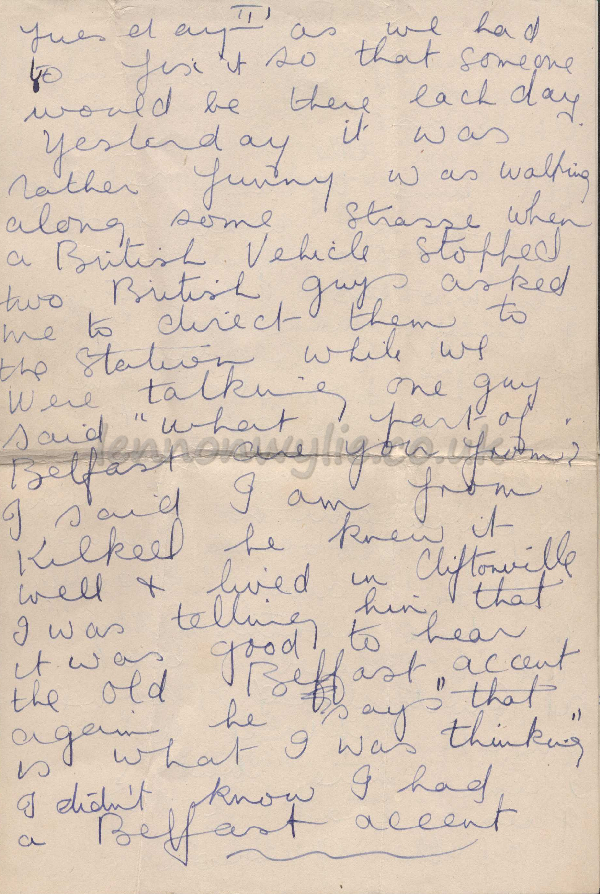 Tuesday II, as we had
to fix it so that someone
would be there each day.
Yesterday it was
rather funny was walking
along some strasse when
a British Vehicle stopped
two British guys asked
me to direct them to
the station while we
were talking one guy
said "what part of
Belfast are you from?
I said I am from
Kilkeel he knew it
well + lived in Cliftonville
I was telling him that
it was good to hear
the old Belfast accent
again he says "that
is what I was thinking"
I didn't know I had
a Belfast accent
lennonwylie.co.uk